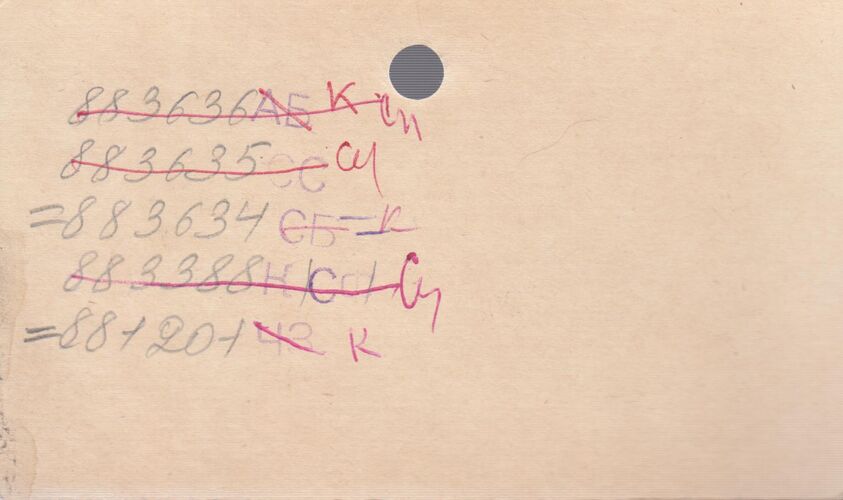 883636 АБ К Сп
883635 СС
=883634 СБ = К
883388 Н/СП/
=881201 ЧЗ К